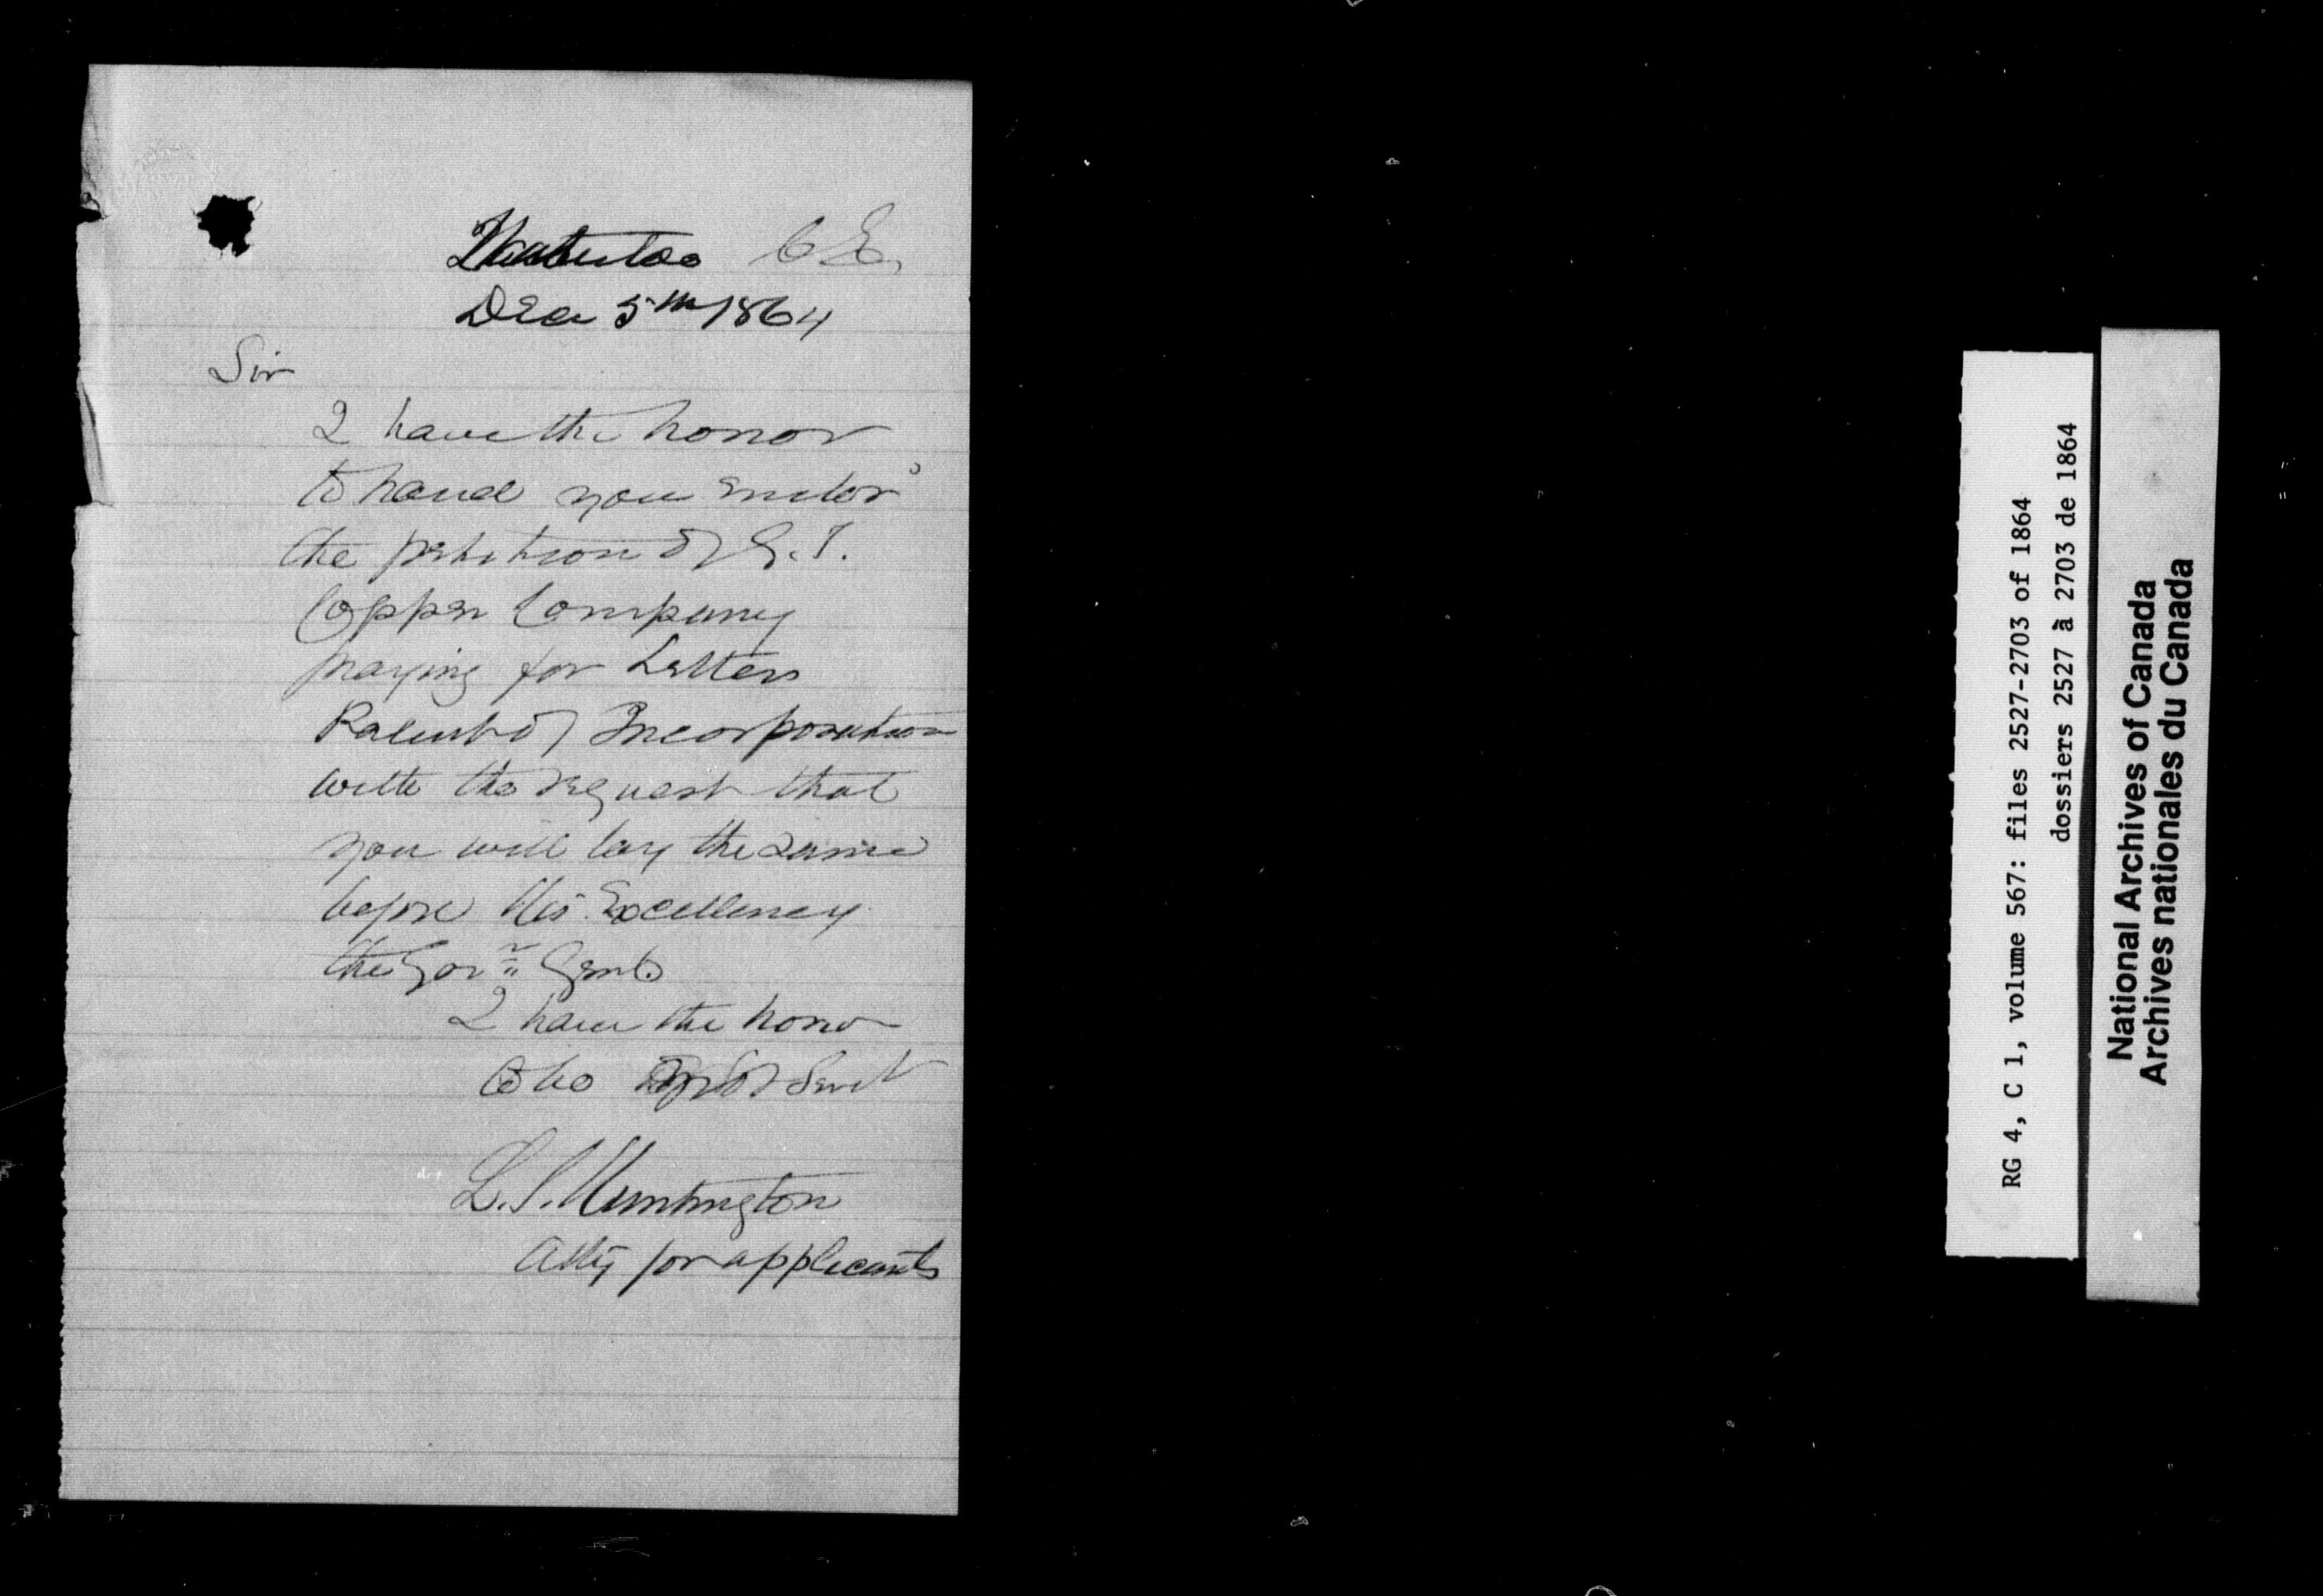 Waterloo C E,
Dec 5th 1864
Sir
I have the honor
to hand you enclosd
the petition of G. T.
Copper Company
praying for Letters
Patent of Incorporation
with the request that
you will lay the same
before His Excellency
the Govr Genl.
I have the honor
to be Servt
L. S. Huntington
Atty for applicants
RG 4, C 1, volume 567: files 2527-2703 of 1864
dossiers 2527 à 2703 de 1864
National Archives of Canada
Archives nationales du Canada